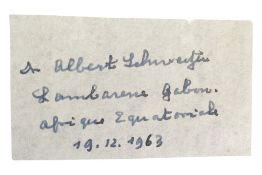 Dr Albert Schweitzer
Lambarene Gabon.
Afrique Equatoriale
19.12.1963